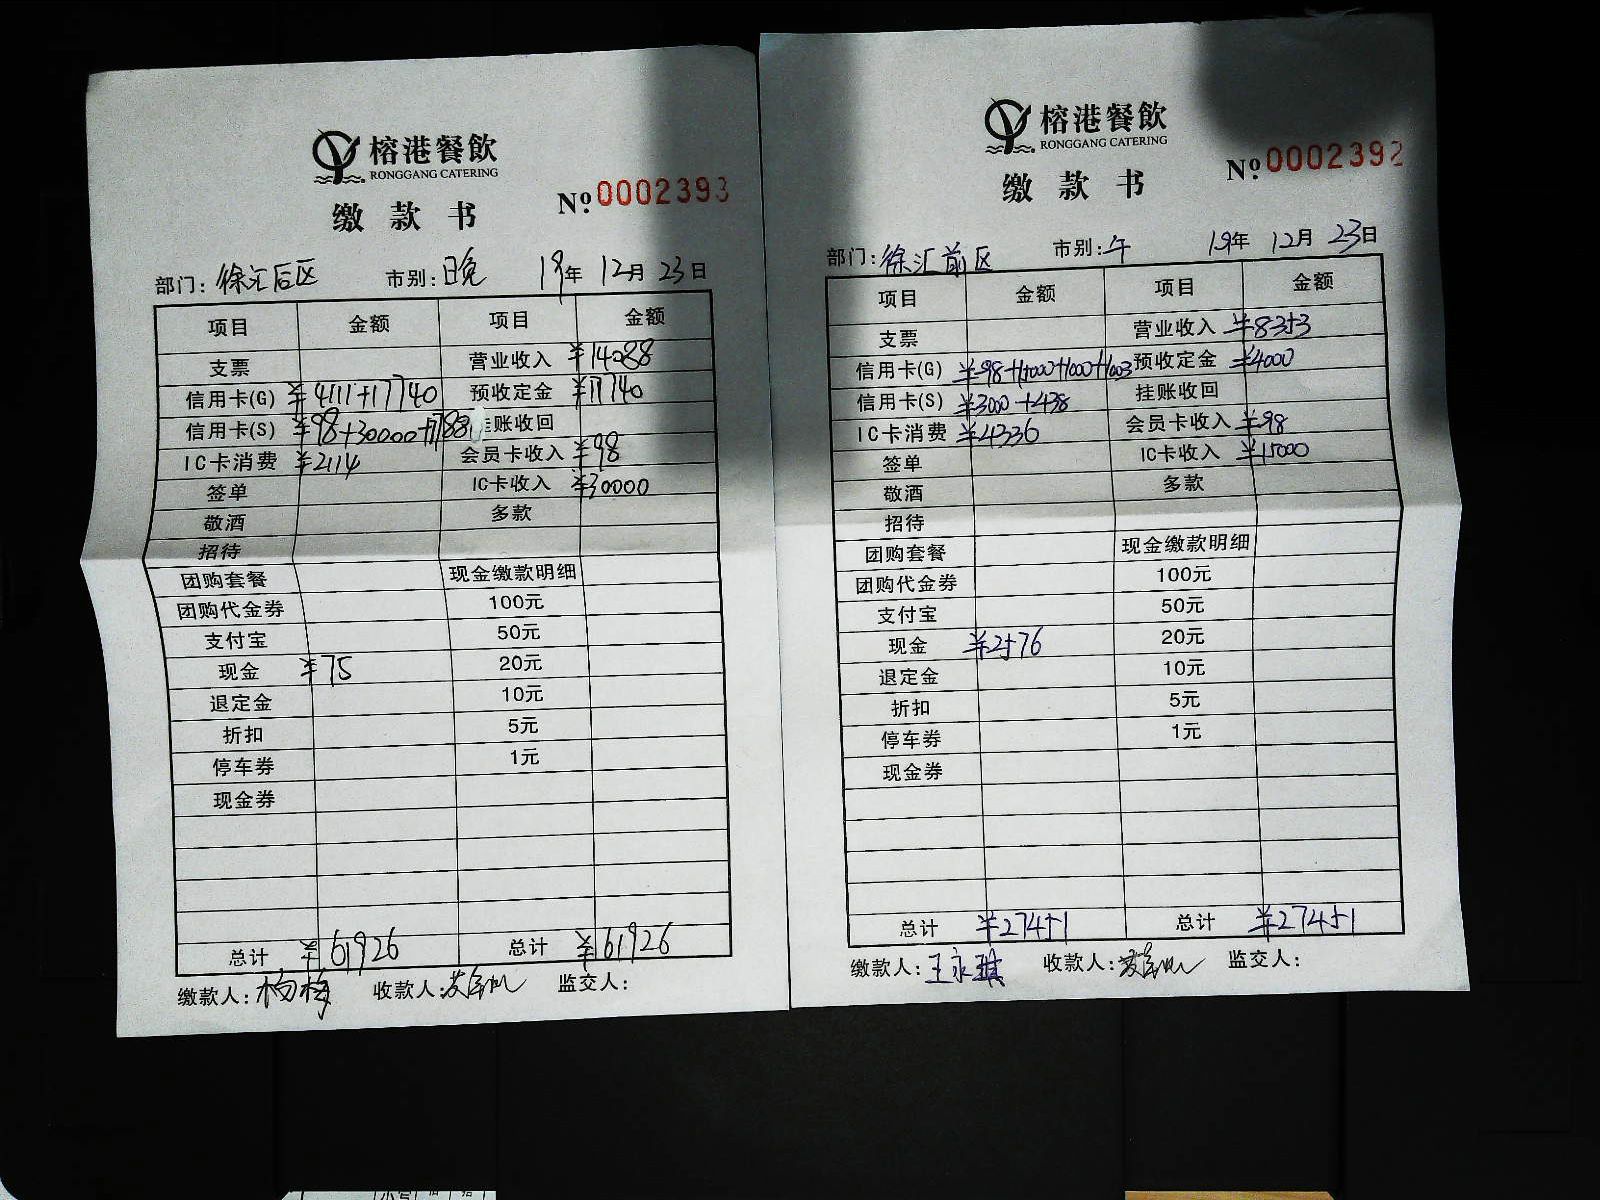 榕港餐飲
RONGGANG CATERING
缴款书
No.0002393
部门:徐汇后区 市别:晚 19年 12月 23日
项目 金额 项目 金额
支票 营业收入 ¥14088
信用卡(G) ¥4111+17740 预收定金 ¥17740
信用卡(S) ¥98+30000+7788 挂账收回
IC卡消费 ¥2114 会员卡收入 ¥98
签单 IC卡收入 ¥30000
敬酒 多款
招待
团购套餐 现金缴款明细
团购代金券 100元
支付宝 50元
现金 ¥75 20元
退定金 10元
折扣 5元
停车券 1元
现金券
总计 ¥61926 总计 ¥61926
缴款人:杨梅 收款人: 监交人:
榕港餐飲
RONGGANG CATERING
缴款书
No.0002392
部门:徐汇前区 市别:午 19年 12月 23日
项目 金额 项目 金额
支票 营业收入 ¥8353
信用卡(G) ¥98+15000+1000+1003 预收定金 ¥4000
信用卡(S) ¥3000+438 挂账收回
IC卡消费 ¥4336 会员卡收入 ¥98
签单 IC卡收入 ¥15000
敬酒 多款
招待
团购套餐 现金缴款明细
团购代金券 100元
支付宝 50元
现金 ¥2576 20元
退定金 10元
折扣 5元
停车券 1元
现金券
总计 ¥27451 总计 ¥27451
缴款人:王永 收款人: 监交人: